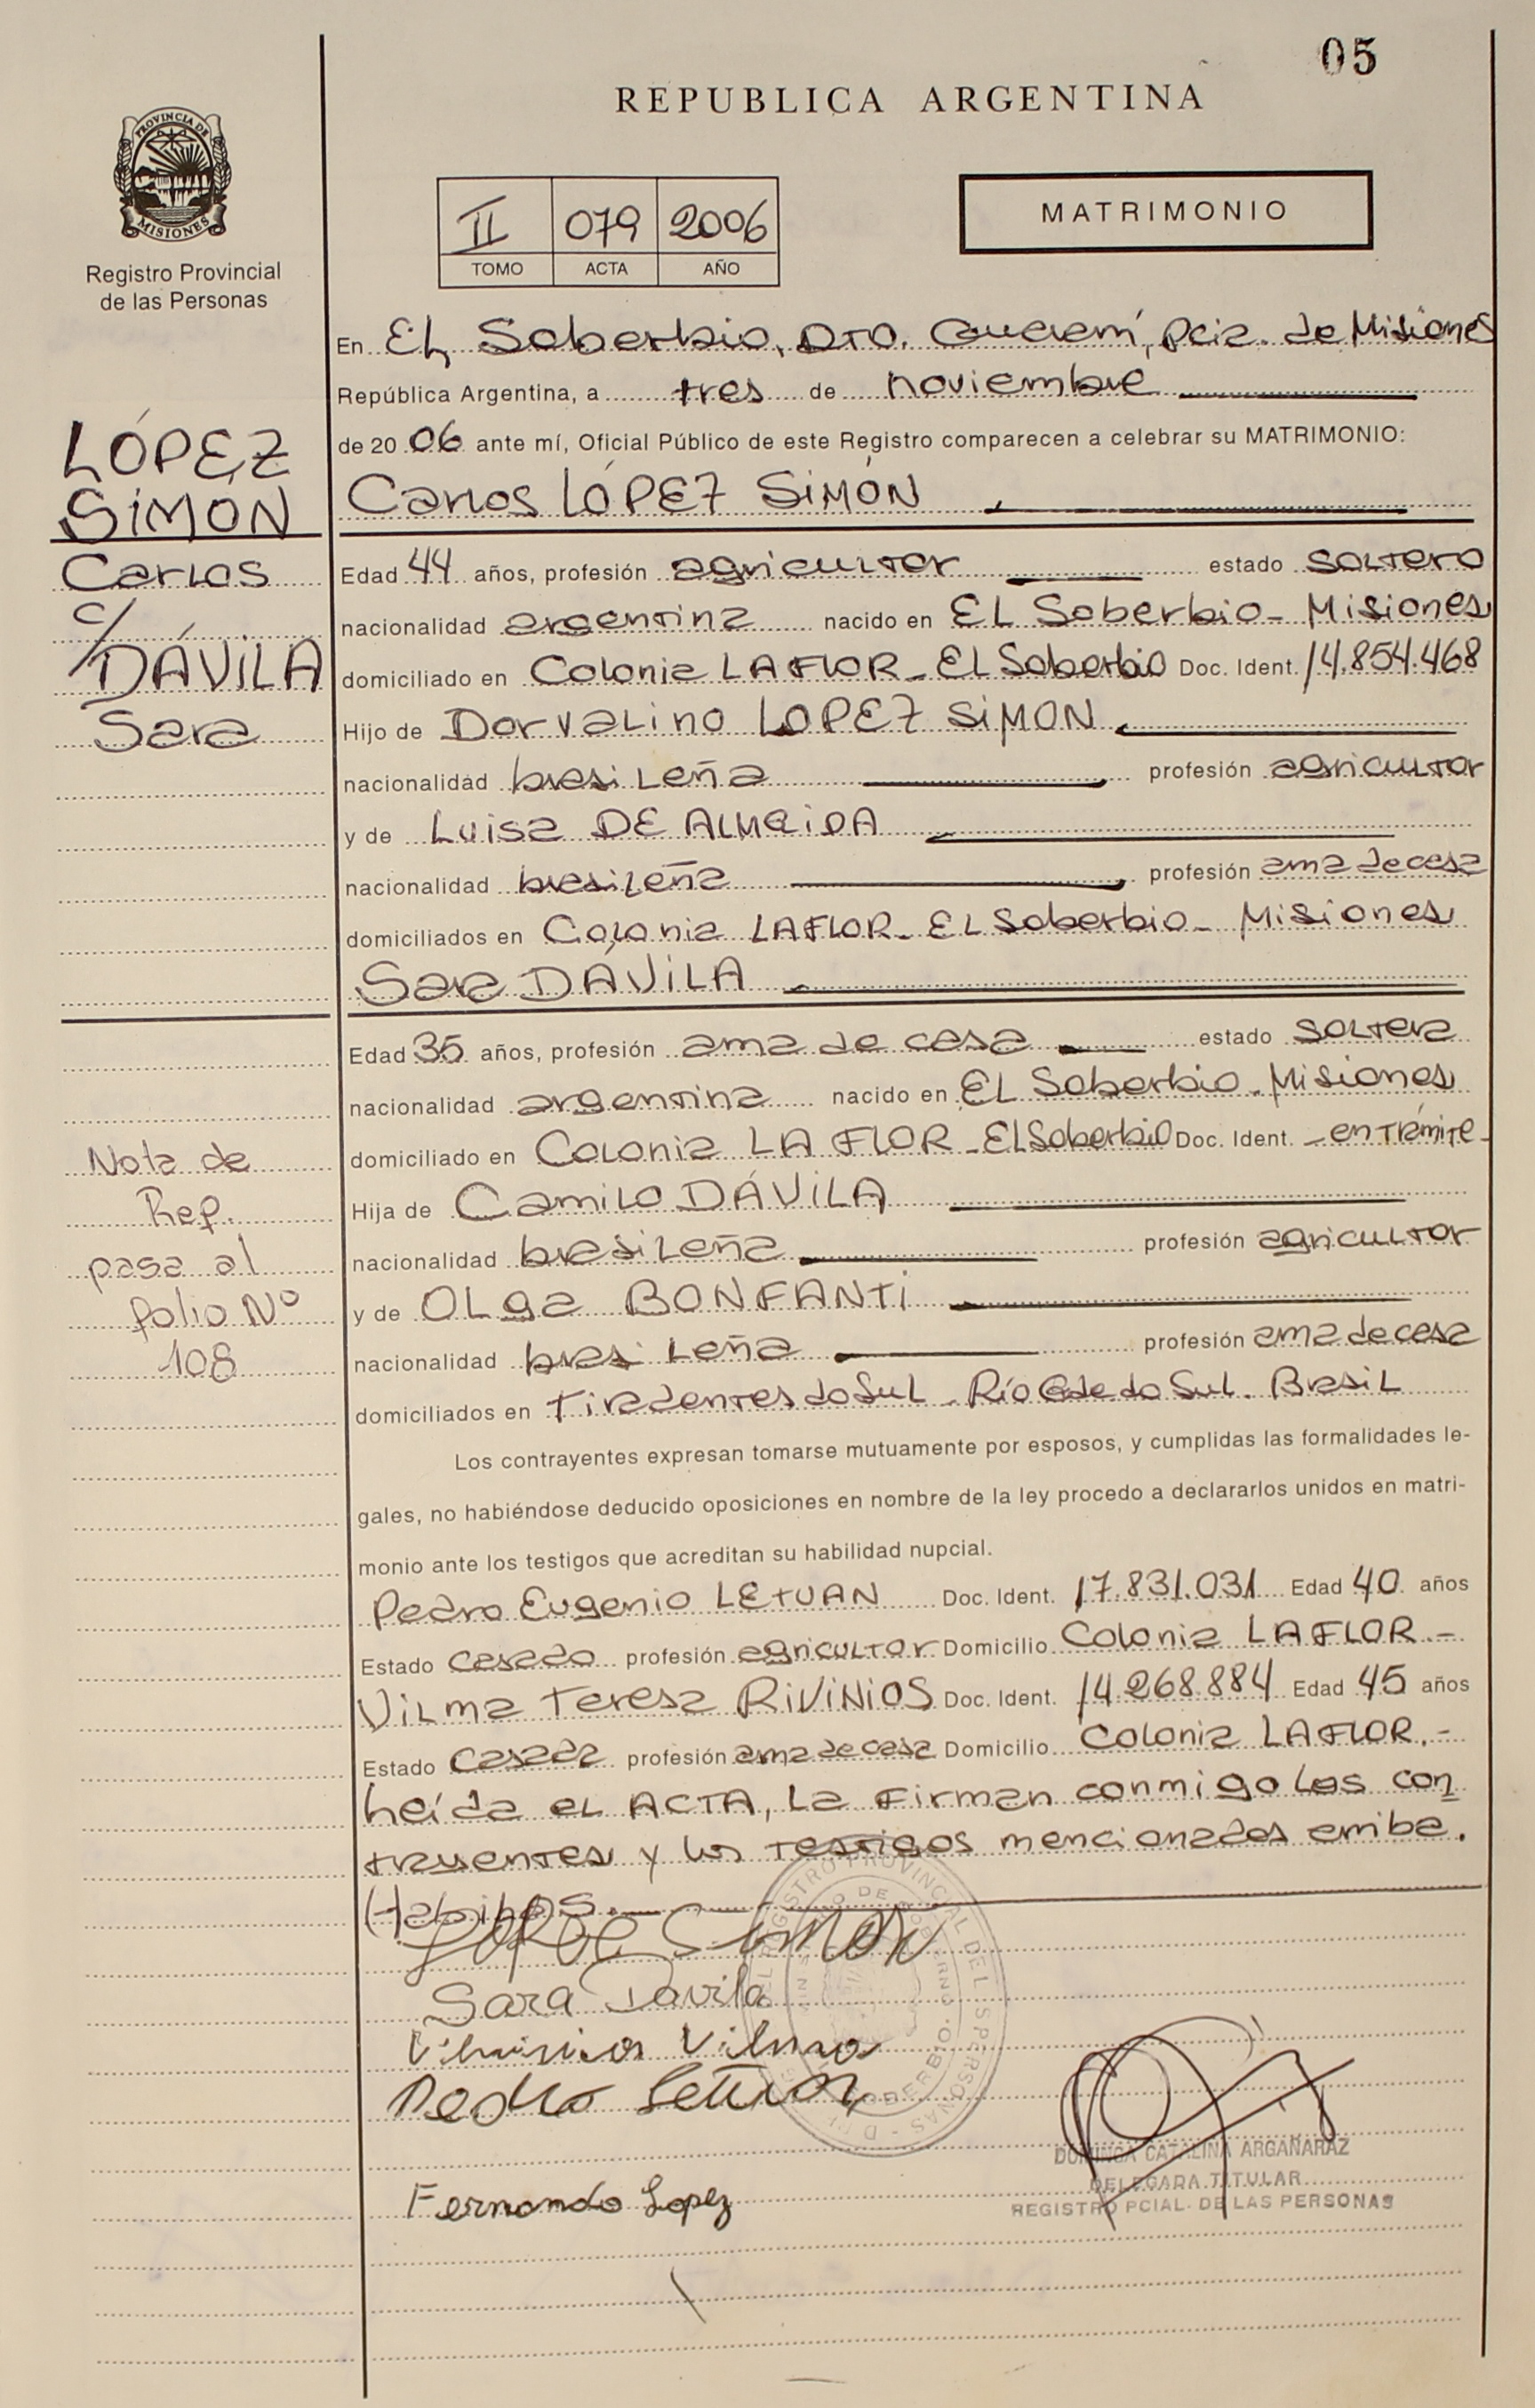 05
REPUBLICA ARGENTINA
PROVINCIA DE
MISIONES
Registro Provincial
de las Personas
II 079 2006
TOMO ACTA AÑO
MATRIMONIO
En EL Soberbio, DTO. Guaraní, Pcia. de Misiones
República Argentina, a tres de noviembre
de 2006 ante mí, Oficial Público de este Registro comparecen a celebrar su MATRIMONIO:
Carlos LÓPEZ SiMÓN
LÓPEZ
SiMÓN
Carlos
c/
DÁViLA
Sara
Edad 44 años, profesión agricultor estado soltero
nacionalidad argentina nacido en EL Soberbio - Misiones
domiciliado en Colonia LA FLOR - El Soberbio Doc. Ident. 14.854.468
Hijo de Dorvalino LOPEZ SiMON
nacionalidad brasileña profesión agricultor
y de Luisa DE ALMEiDA
nacionalidad brasileña profesión ama de casa
domiciliados en Colonia LA FLOR - EL Soberbio - Misiones
Sara DÁViLA
Edad 35 años, profesión ama de casa estado soltera
nacionalidad argentina nacido en EL Soberbio - Misiones
domiciliado en Colonia LA FLOR - El Soberbio Doc. Ident. - en Trámite -
Hija de Camilo DÁViLA
nacionalidad brasileña profesión agricultor
y de Olga BONFANTi
nacionalidad brasileña profesión ama de casa
domiciliados en Tiradentes do Sul - Río Gde do Sul - Brasil
Nota de
Ref.
pasa al
folio Nº
108
Los contrayentes expresan tomarse mutuamente por esposos, y cumplidas las formalidades le-
gales, no habiéndose deducido oposiciones en nombre de la ley procedo a declararlos unidos en matri-
monio ante los testigos que acreditan su habilidad nupcial.
Pedro Eugenio LETUAN Doc. Ident. 17.831.031 Edad 40 años
Estado casado profesión agricultor Domicilio Colonia LA FLOR -
Vilma Teresa RiViNiOS Doc. Ident. 14.268.884 Edad 45 años
Estado casada profesión ama de casa Domicilio Colonia LA FLOR.-
Leída el ACTA, la firman conmigo los con
trayentes y los testigos mencionados arriba.
LOPEZ SimON
Sara Davila
Vilma
Pedro Letuan
Fernando Lopez
DOMINGA CATALINA ARGAÑARAZ
DELEGADA TITULAR
REGISTRO PCIAL. DE LAS PERSONAS